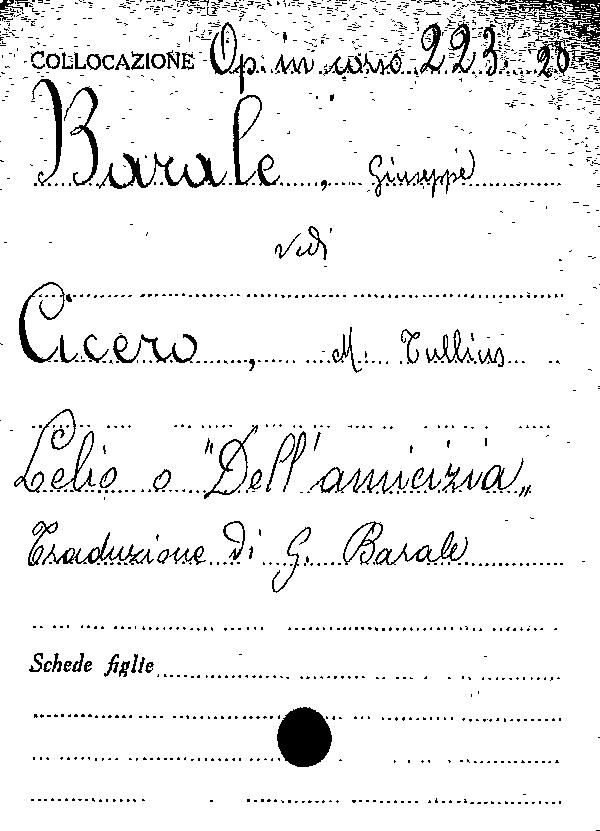 COLLOCAZIONE Op. in corso 223. 20
Barale, Giuseppe
vedi
Cicero, M. Tullius
Lelio o "Dell'amicizia„
Traduzione di G. Barale
Schede figlie